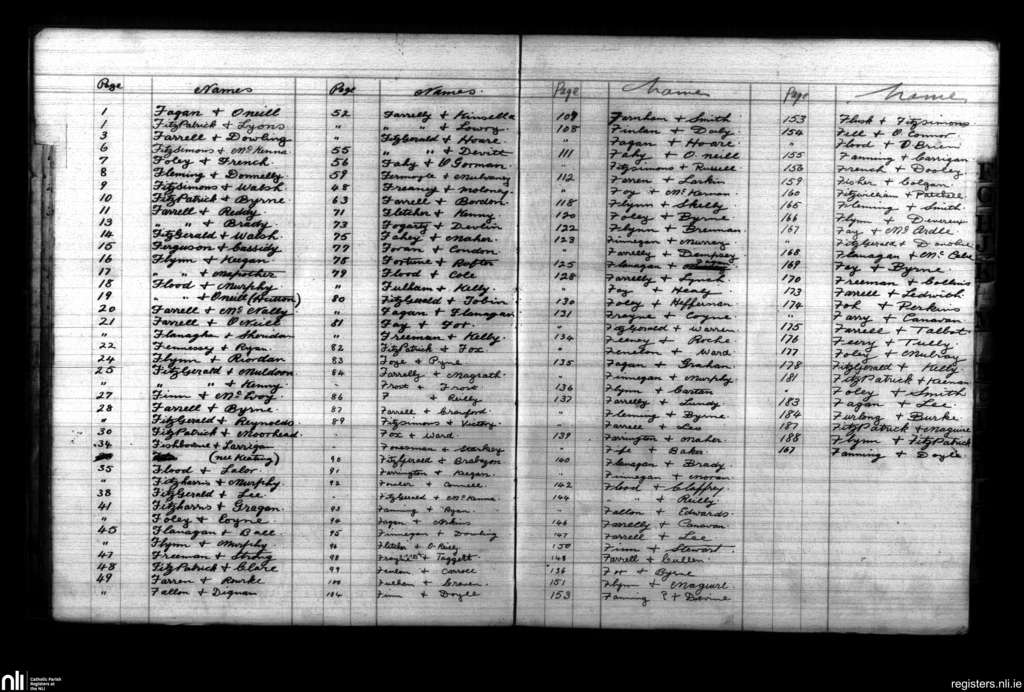 Page Names
1 Fagan + Oneill
1 FitzPatrick + Lyons
3 Farrell + Dowling
6 FitzSimons + McKenna
7 Foley + French
8 Fleming + Donnelly
9 Fitzsimons + Walsh
10 FitzPatrick + Byrne
11 Farrell + Reddy
13 " " + Brady
14 FitzGerald + Walsh
15 Ferguson + Cassidy
16 Flynn + Keegan
17 " " + Mapother
18 Flood + Murphy
19 " " + Oneill (Hutton)
20 Farrell + McNally
21 Farrell + O'Neill
" Flanagan + Sheridan
22 Fennessey + Ryan
24 Flynn + Riordan
25 FitzGerald + Muldoon
" " " + Kenny
27 Finn + McEvoy
28 Farrell + Byrne
" FitzGerald + Reynolds
30 FitzPatrick + Moorhead
34 Fishbourne + Larrigan
(nee Keating)
35 Flood + Lalor
" Fitzharris + Murphy
38 FitzGerald + Lee
41 Fitzharris + Gragan
" Foley + Coyne
45 Flanagan + Ball
" Flynn + Murphy
47 Freeman + Strong
48 FitzPatrick + Clare
49 Farren + Rourke
" Fallon + Dignan
Page Names
52 Farrelly + Kinsella
" " " + Lowry
" FitzGerald + Hoare
55 " " + Devitt
56 Fahy + O'Gorman
59 Fermoyle + Mulvaney
48 Freaney + Moloney
63 Farrell + Bordon
71 Fletcher + Kenny
73 Fogarty + Devlin
75 Fahey + Maher
77 Foran + Condon
78 Fortune + Rafter
79 Flood + Cole
" Fulham + Kelly
80 FitzGerald + Tobin
" Fagan + Flanagan
81 Fay + Fox
" Freeman + Kelly
82 FitzPatrick + Fox
83 Foge + Pyne
84 Farrelly + Magrath
- Frost + Frost
86 F + Reilly
87 Farrell + Crawford
89 Fitzsimons + Victory
- Fox + Ward
- Foreman + Starkey
90 FitzGerald + Brabazon
91 Farrington + Keegan
92 Fowler +
- FitzGerald + McKenna
93 Fanning + Ryan
94 Fagan +
95 Finnegan + Dowling
96 Fletcher + O'Reilly
98 + Taggart
99 Fenlon + Carroll
100 Fulham +
104 Finn + Doyle
Page Name
109 Farnham + Smith
108 Finlan + Daly
" Fagan + Hoare
111 Fahy + O'neill
" Fitzsimons + Russell
112 Farren + Larkin
" Foy + McKernan
118 Flynn + Skelly
120 Foley + Byrne
122 Flynn + Brennan
123 Finnegan + Murray
" Farrelly + Dempsey
125 Flanagan +
128 Farrelly + Lynch
" Foy + Healy
130 Foley + Heffernan
131 Frayne + Coyne
" FitzGerald + Warren
134 Feeney + Roche
" Feneton + Ward
135 Fagan + Graham
" Finnegan + Murphy
136 Flynn + Cartan
137 Farrelly + Lundy
" Fleming + Byrne
" Farrell + Lee
139 Farrington + Maher
" Fife + Baker
140 Flanagan + Brady
" Finnegan + Moran
142 Flood + Claffey
144 " " + Reilly
- Fallon + Edwards
146 Farrelly + Canavan
147 Farrell + Lee
150 Finn + Stewart
148 Farrell + Cullen
136 Fox + Byrne
151 Flynn + Maguire
153 Fanning ? + Devine
Page Name
153 Flook + Fitzsimons
154 Fell + O'Connor
" Flood + O'Brien
155 Fanning + Carrigan
156 French + Dooley
159 Fisher + Colgan
160 Fitzwilliam + Patchell
165 Fleming + Smith
166 Flynn + Devereux
167 Fay + McArdle
" FitzGerald + Donohoe
168 Flanagan + McCabe
169 Foy + Byrne
170 Freeman + Collins
173 Farrell + Ledwith
174 Fox + Perkins
" Farry + Canavan
175 Farrell + Talbot
176 Feery + Tully
177 Foley + Mulroy
178 FitzGerald + Kelly
181 FitzPatrick + Keenan
" Foley + Smith
183 Fagan + Lee
184 Furlong + Burke
187 FitzPatrick + Maguire
188 Flynn + FitzPatrick
167 Fanning + Doyle
nli Catholic Parish
Registers at
the NLI
registers.nli.ie